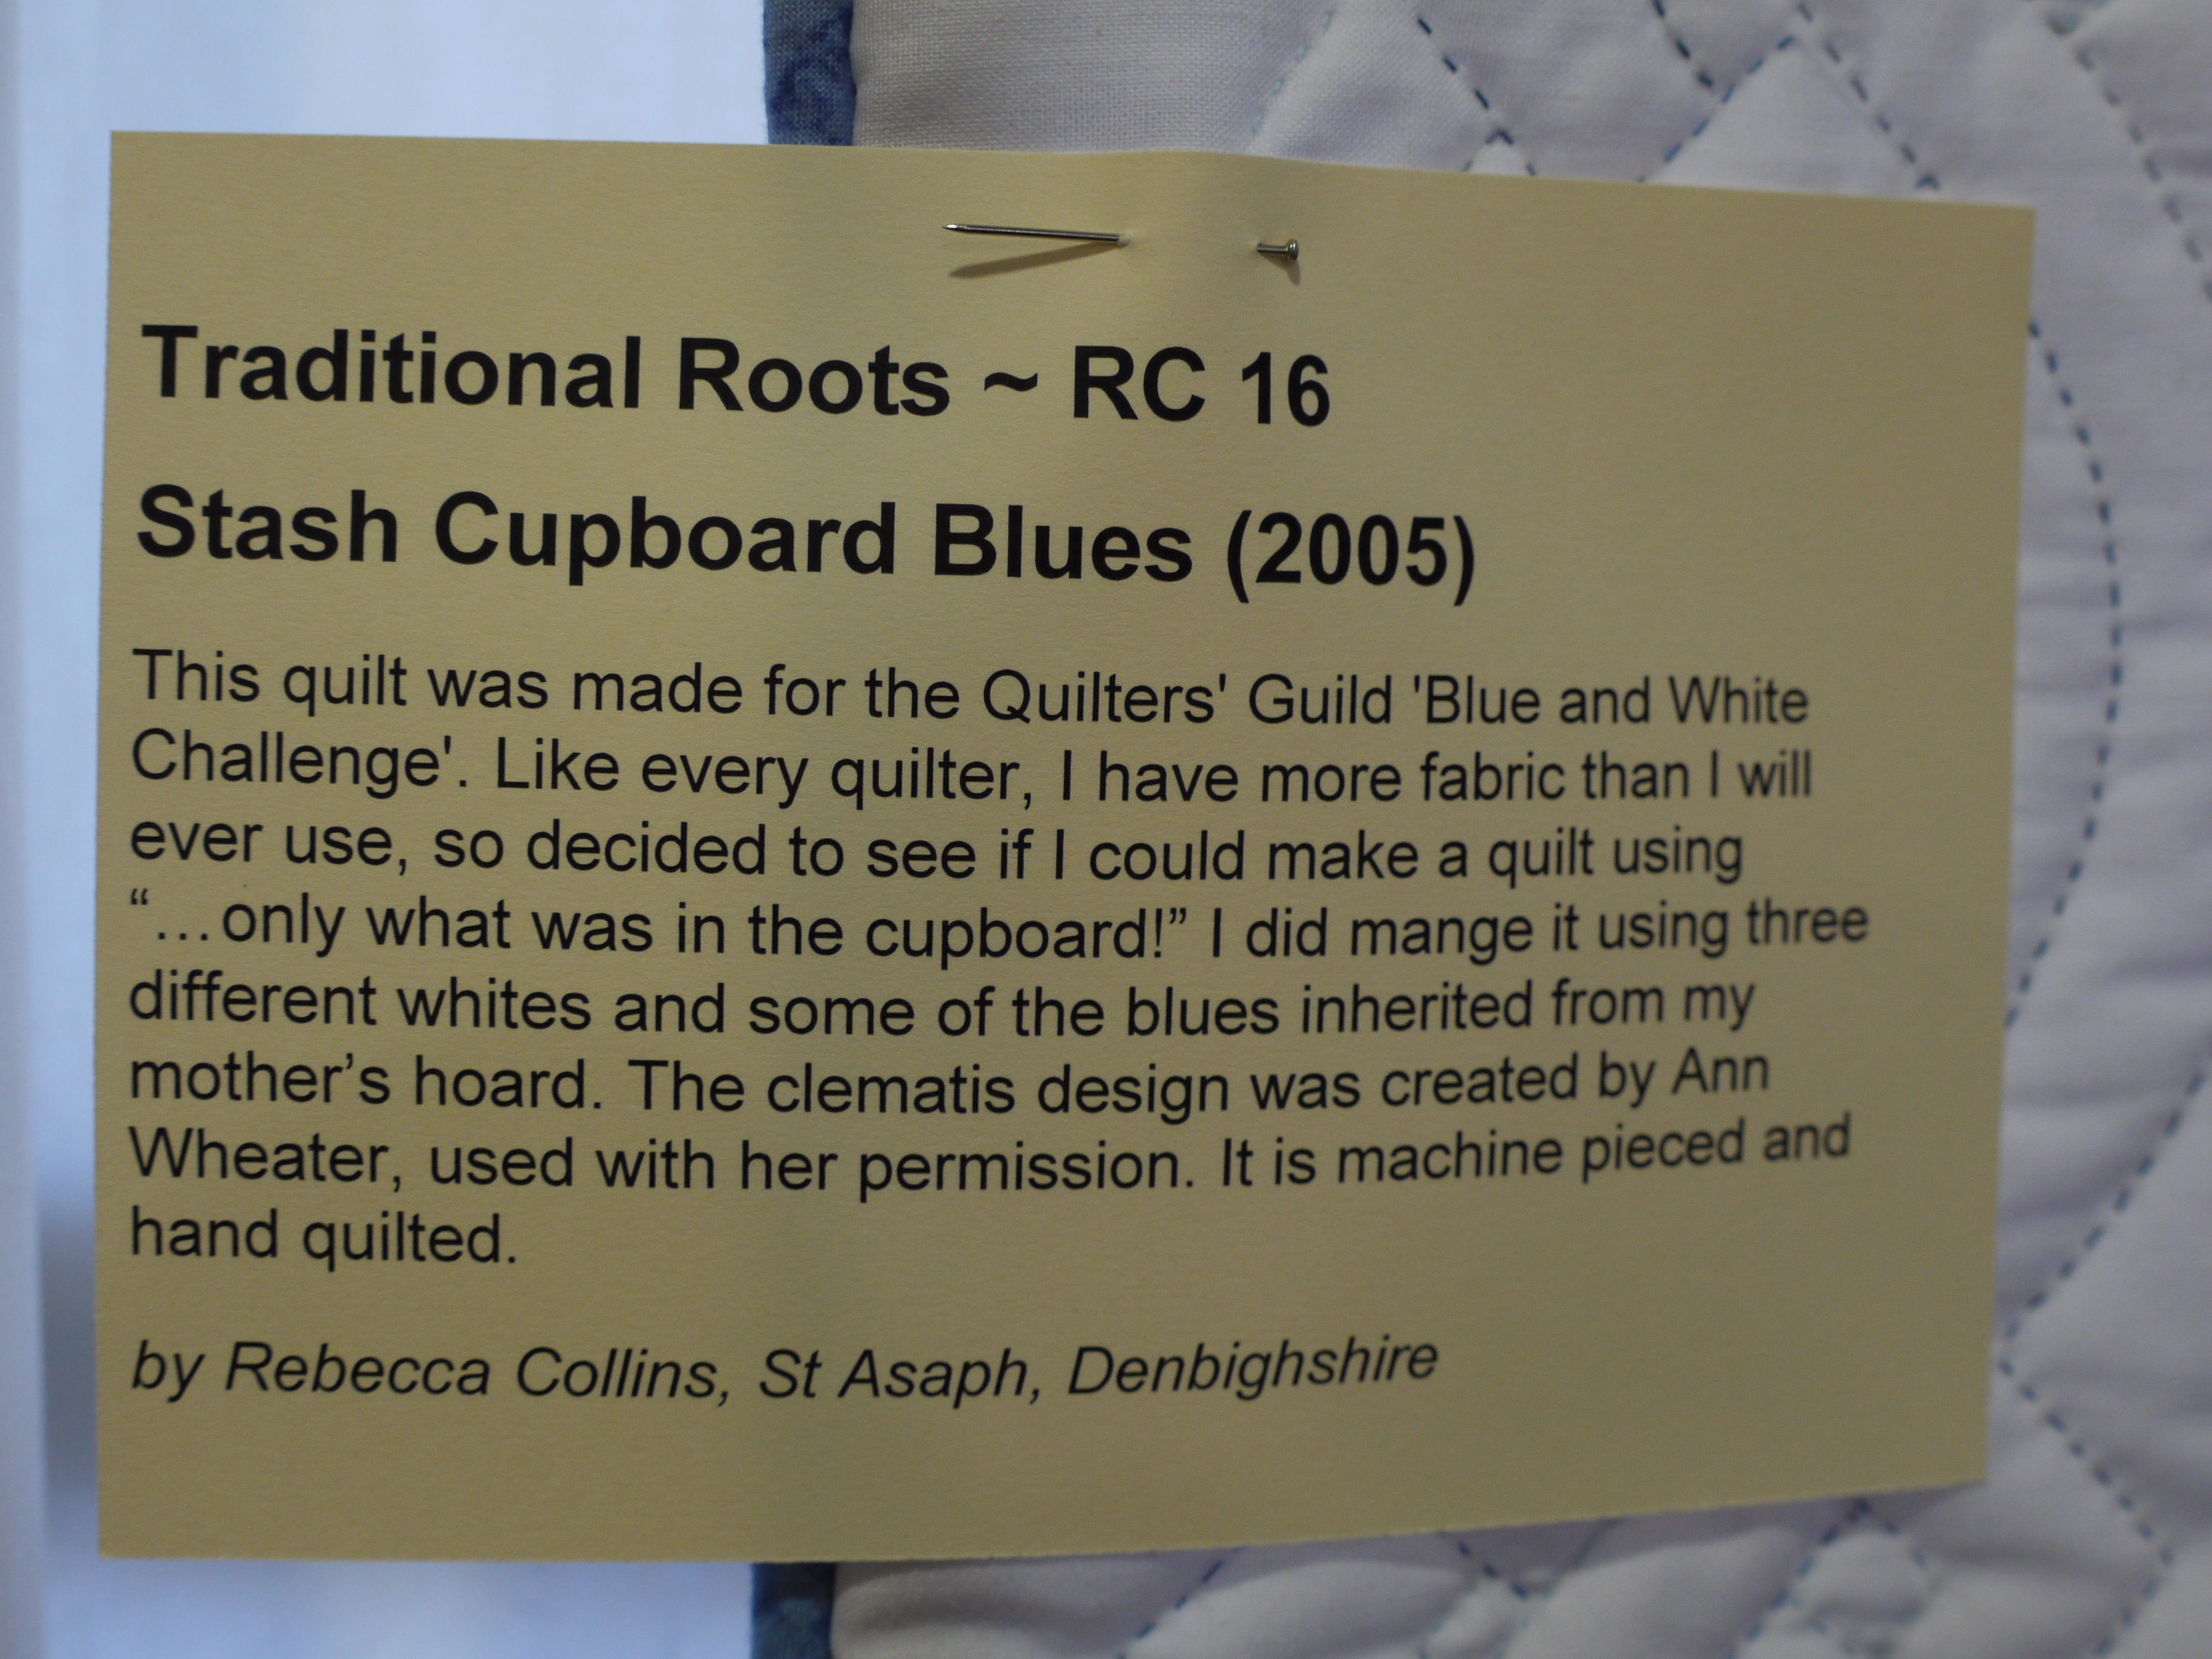 Traditional Roots ~ RC 16
Stash Cupboard Blues (2005)
This quilt was made for the Quilters' Guild 'Blue and White
Challenge'. Like every quilter, I have more fabric than I will
ever use, so decided to see if I could make a quilt using
“…only what was in the cupboard!” I did mange it using three
different whites and some of the blues inherited from my
mother’s hoard. The clematis design was created by Ann
Wheater, used with her permission. It is machine pieced and
hand quilted.
by Rebecca Collins, St Asaph, Denbighshire